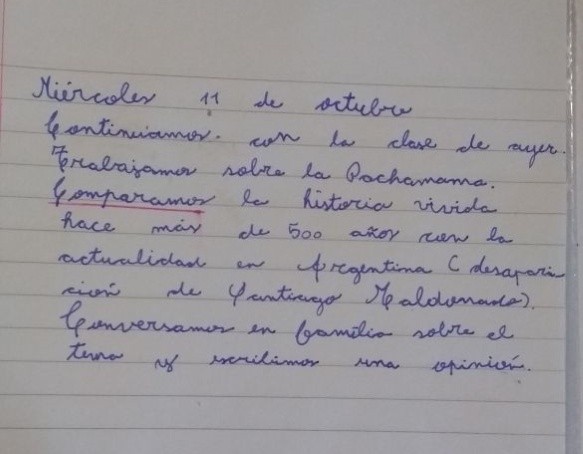 Miércoles 11 de octubre
Continuamos. con la clase de ayer.
Trabajamos sobre la Pachamama.
Comparamos la historia vivida
hace más de 500 años con la
actualidad en Argentina (desapari
ción de Santiago Maldonado).
Conversamos en familia sobre el
tema y escribimos una opinión.